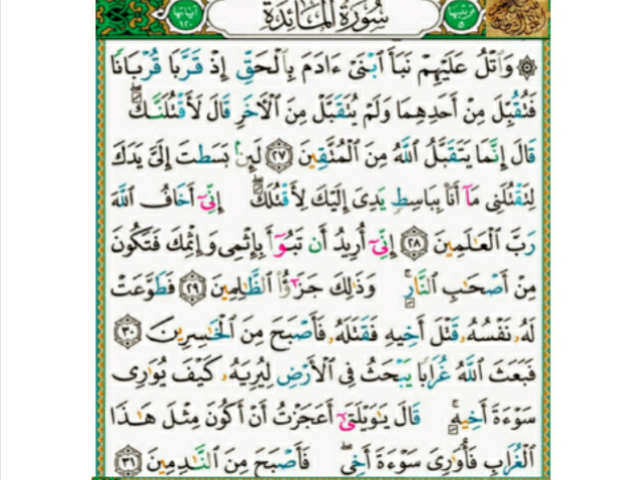 سُورَةُ الْمَائِدَةِ
وَٱتْلُ عَلَيْهِمْ نَبَأَ ٱبْنَىْ ءَادَمَ بِٱلْحَقِّ إِذْ قَرَّبَا قُرْبَانًا
فَتُقُبِّلَ مِنْ أَحَدِهِمَا وَلَمْ يُتَقَبَّلْ مِنَ ٱلْأَخَرِ قَالَ لَأَقْتُلَنَّكَ
قَالَ إِنَّمَا يَتَقَبَّلُ ٱللَّهُ مِنَ ٱلْمُتَّقِينَ ﴿٢٧﴾ لَئِنۢ بَسَطتَ إِلَىَّ يَدَكَ
لِتَقْتُلَنِى مَآ أَنَا۠ بِبَاسِطٍ يَدِىَ إِلَيْكَ لِأَقْتُلَكَ إِنِّىٓ أَخَافُ ٱللَّهَ
رَبَّ ٱلْعَٰلَمِينَ ﴿٢٨﴾ إِنِّىٓ أُرِيدُ أَن تَبُوٓأَ بِإِثْمِى وَإِثْمِكَ فَتَكُونَ
مِنْ أَصْحَٰبِ ٱلنَّارِ وَذَٰلِكَ جَزَٰٓؤُا۟ ٱلظَّٰلِمِينَ ﴿٢٩﴾ فَطَوَّعَتْ
لَهُۥ نَفْسُهُۥ قَتْلَ أَخِيهِ فَقَتَلَهُۥ فَأَصْبَحَ مِنَ ٱلْخَٰسِرِينَ ﴿٣٠﴾
فَبَعَثَ ٱللَّهُ غُرَابًا يَبْحَثُ فِى ٱلْأَرْضِ لِيُرِيَهُۥ كَيْفَ يُوَٰرِى
سَوْءَةَ أَخِيهِ قَالَ يَٰوَيْلَتَىٰٓ أَعَجَزْتُ أَنْ أَكُونَ مِثْلَ هَٰذَا
ٱلْغُرَابِ فَأُوَٰرِىَ سَوْءَةَ أَخِى فَأَصْبَحَ مِنَ ٱلنَّٰدِمِينَ ﴿٣١﴾